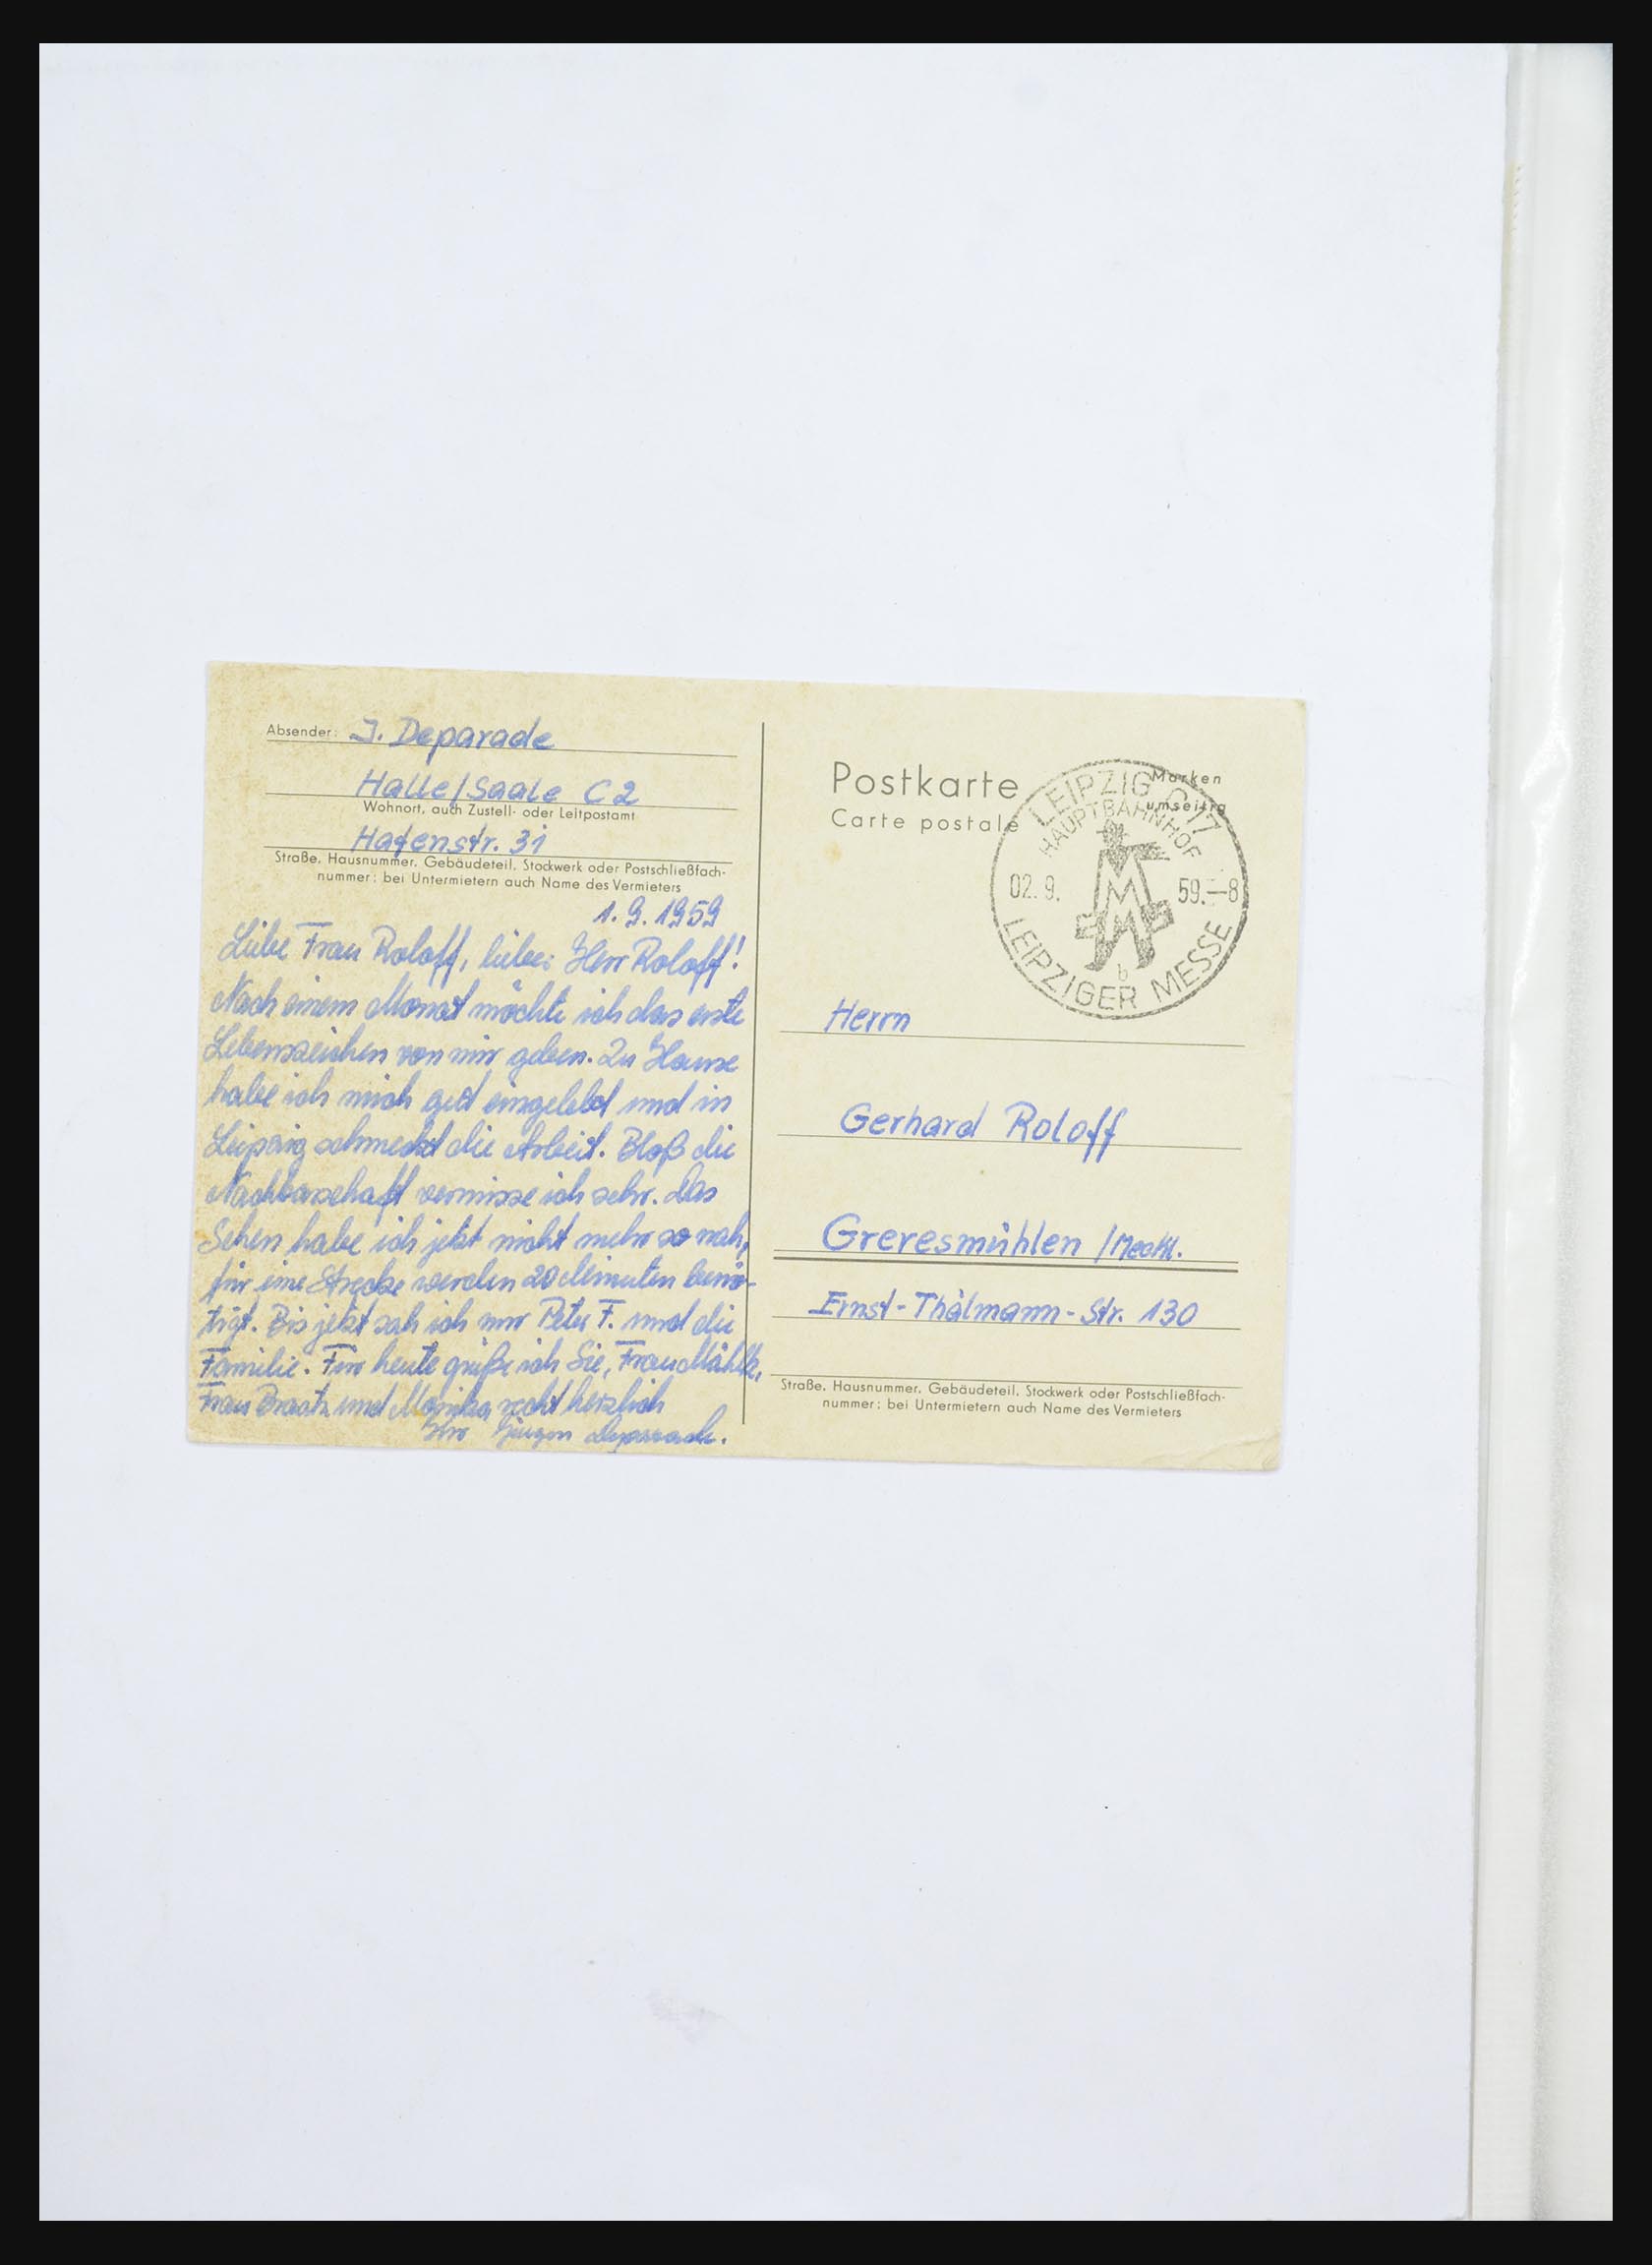 Absender: J. Deparade
Halle/Saale C2
Wohnort, auch Zustell- oder Leitpostamt
Hafenstr. 31
Straße, Hausnummer, Gebäudeteil, Stockwerk oder Postschließfach-
nummer; bei Untermietern auch Name des Vermieters
1.9.1959
Liebe Frau Roloff, lieber Herr Roloff!
Nach einem Monat möchte ich das erste
Lebenszeichen von mir geben. Zu Hause
habe ich mich gut eingelebt und in
Leipzig schmeckt die Arbeit. Bloß die
Nachbarschaft vermisse ich sehr. Das
Sehen habe ich jetzt nicht mehr so nah,
für eine Strecke werden 20 Minuten benö-
tigt. Bis jetzt sah ich nur Peter F. und die
Familie. Für heute grüße ich Sie, Frau
Frau Braatz und Monika recht herzlich
Ihr Jürgen Deparade.
Postkarte
Carte postale
Marken
umseitig
LEIPZIG C 17
HAUPTBAHNHOF
02.9. 59.-8
MM
b
LEIPZIGER MESSE
Herrn
Gerhard Roloff
Greresmühlen /Meckl.
Ernst-Thälmann-Str. 130
Straße, Hausnummer, Gebäudeteil, Stockwerk oder Postschließfach-
nummer; bei Untermietern auch Name des Vermieters